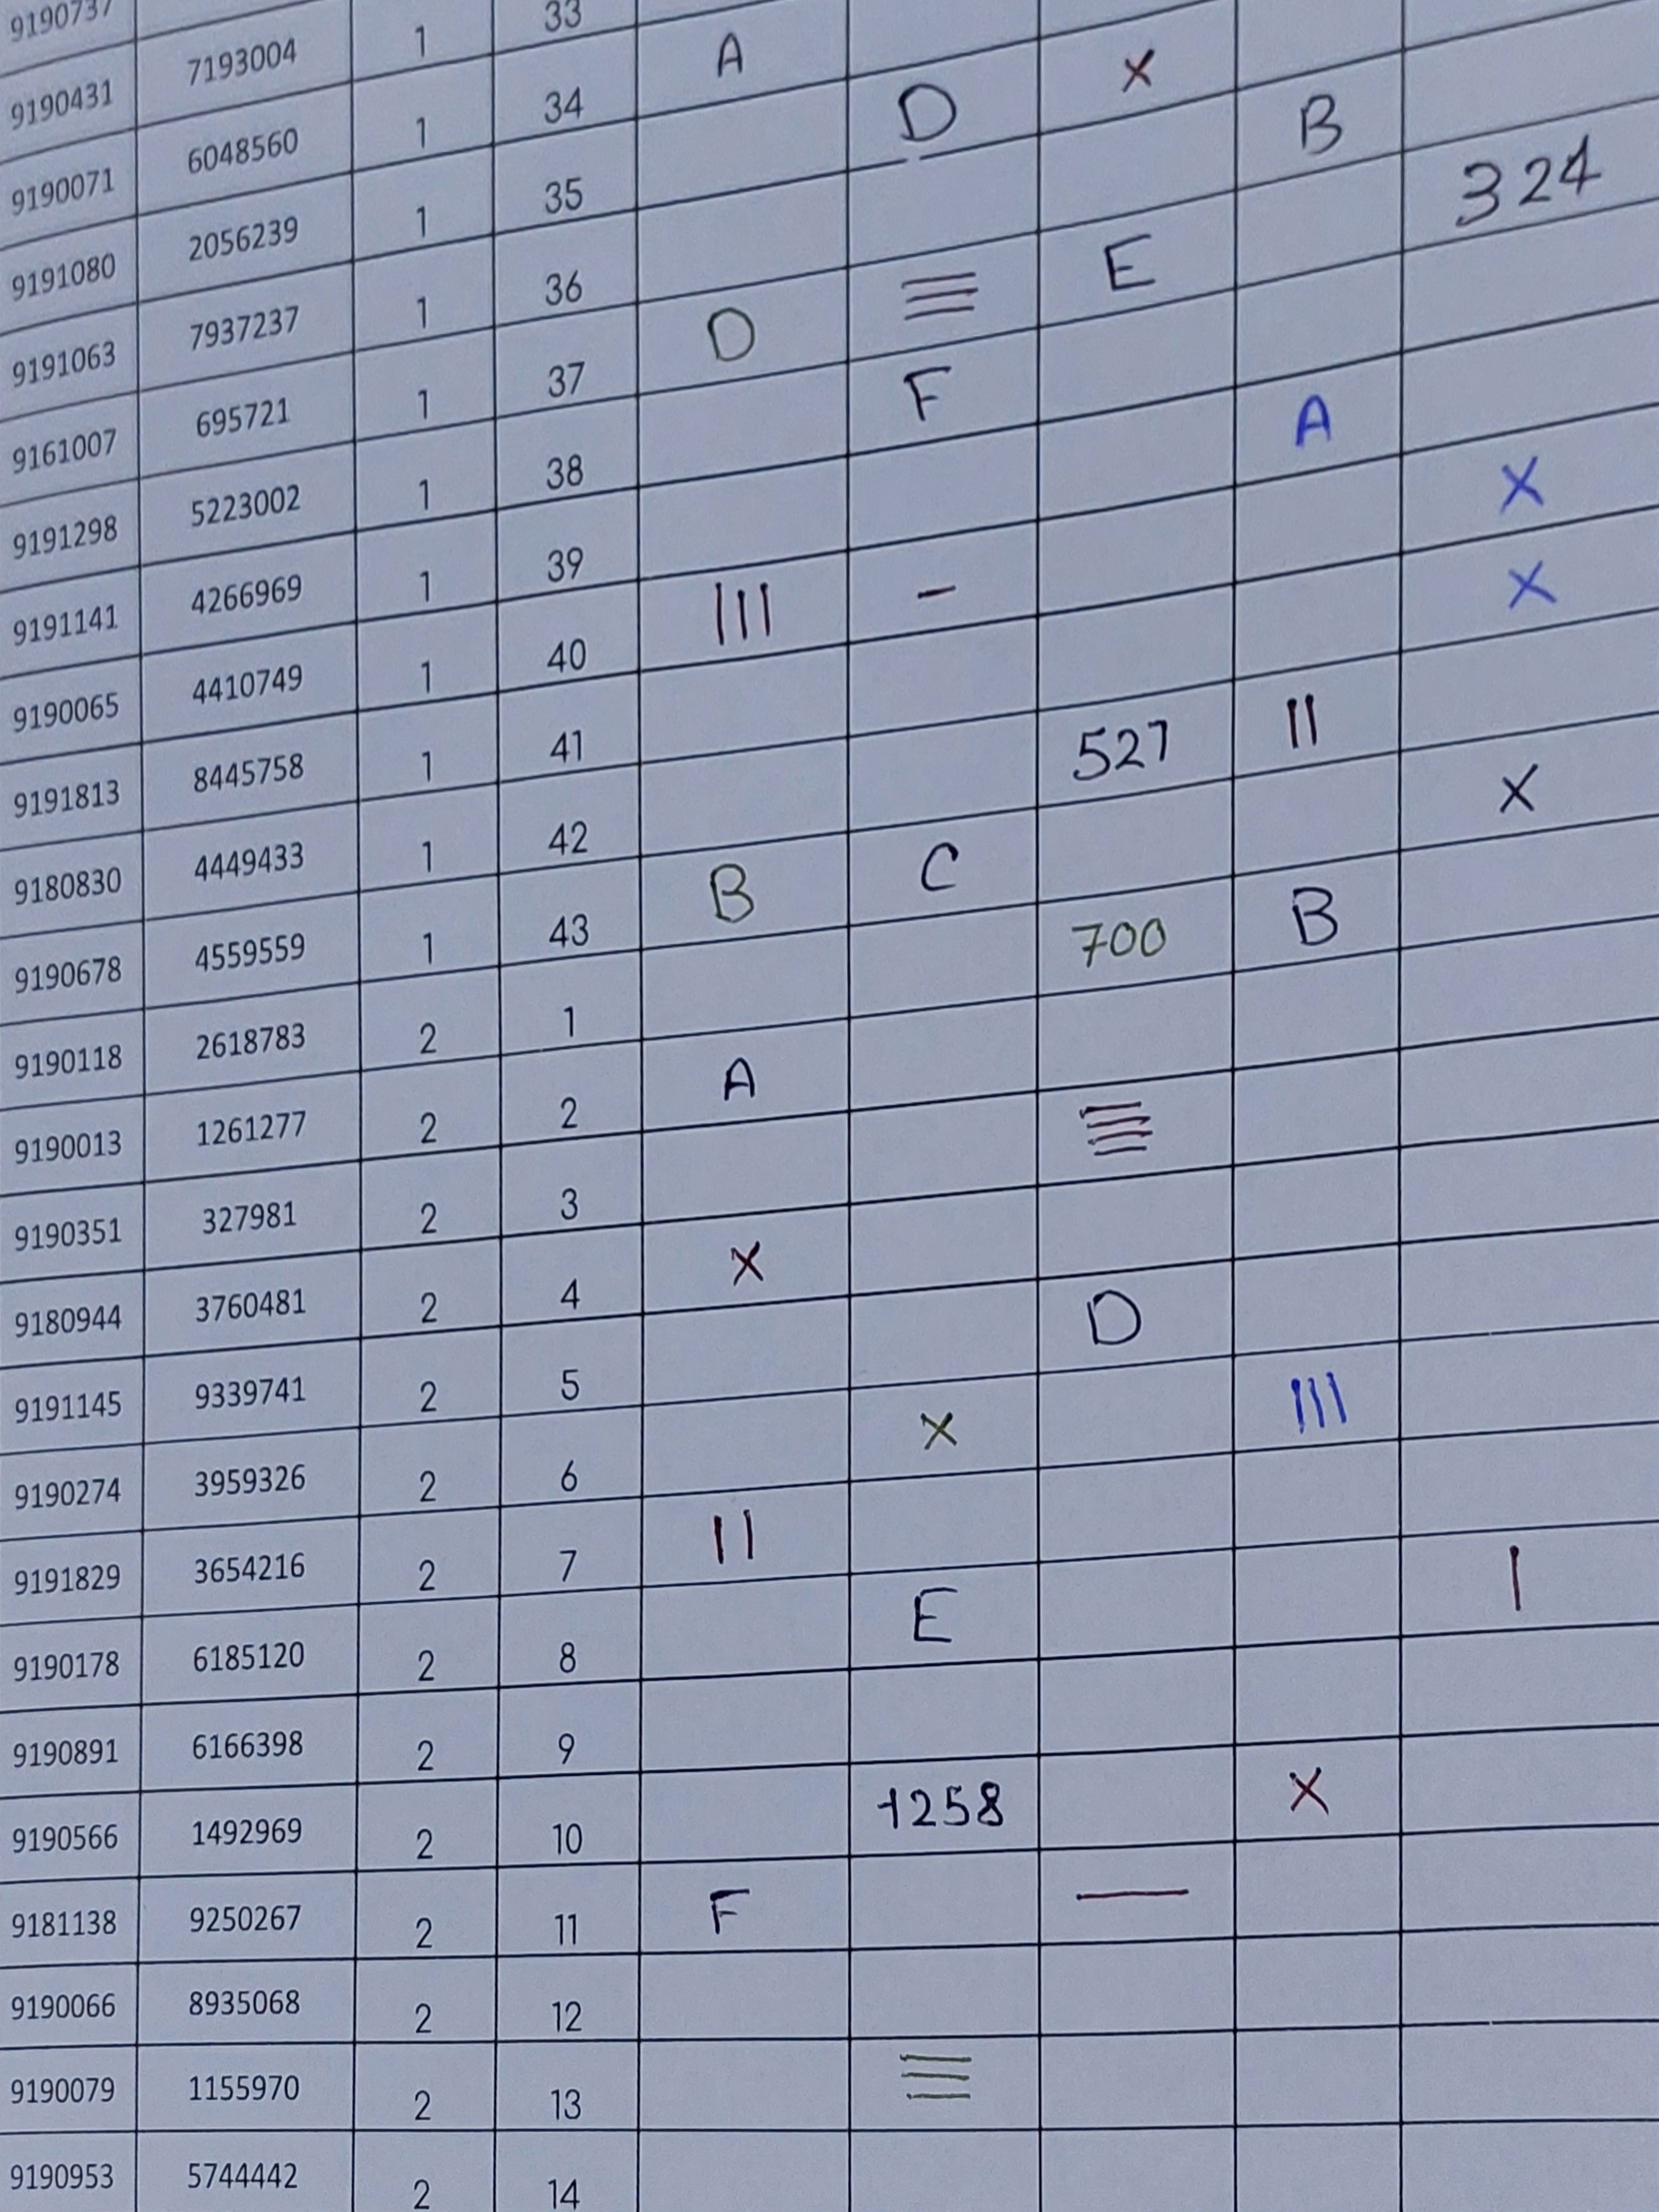 9190737
9190431 7193004 1 33
9190071 6048560 1 34 A
9191080 2056239 1 35 D X
9191063 7937237 1 36 B
9161007 695721 1 37 D E 324
9191298 5223002 1 38 F
9191141 4266969 1 39 A
9190065 4410749 1 40 III - X
9191813 8445758 1 41 X
9180830 4449433 1 42 527 II
9190678 4559559 1 43 B C X
9190118 2618783 2 1 700 B
9190013 1261277 2 2 A
9190351 327981 2 3
9180944 3760481 2 4 X
9191145 9339741 2 5 D
9190274 3959326 2 6 X III
9191829 3654216 2 7 II
9190178 6185120 2 8 E I
9190891 6166398 2 9
9190566 1492969 2 10 1258 X
9181138 9250267 2 11 F —
9190066 8935068 2 12
9190079 1155970 2 13
9190953 5744442 2 14